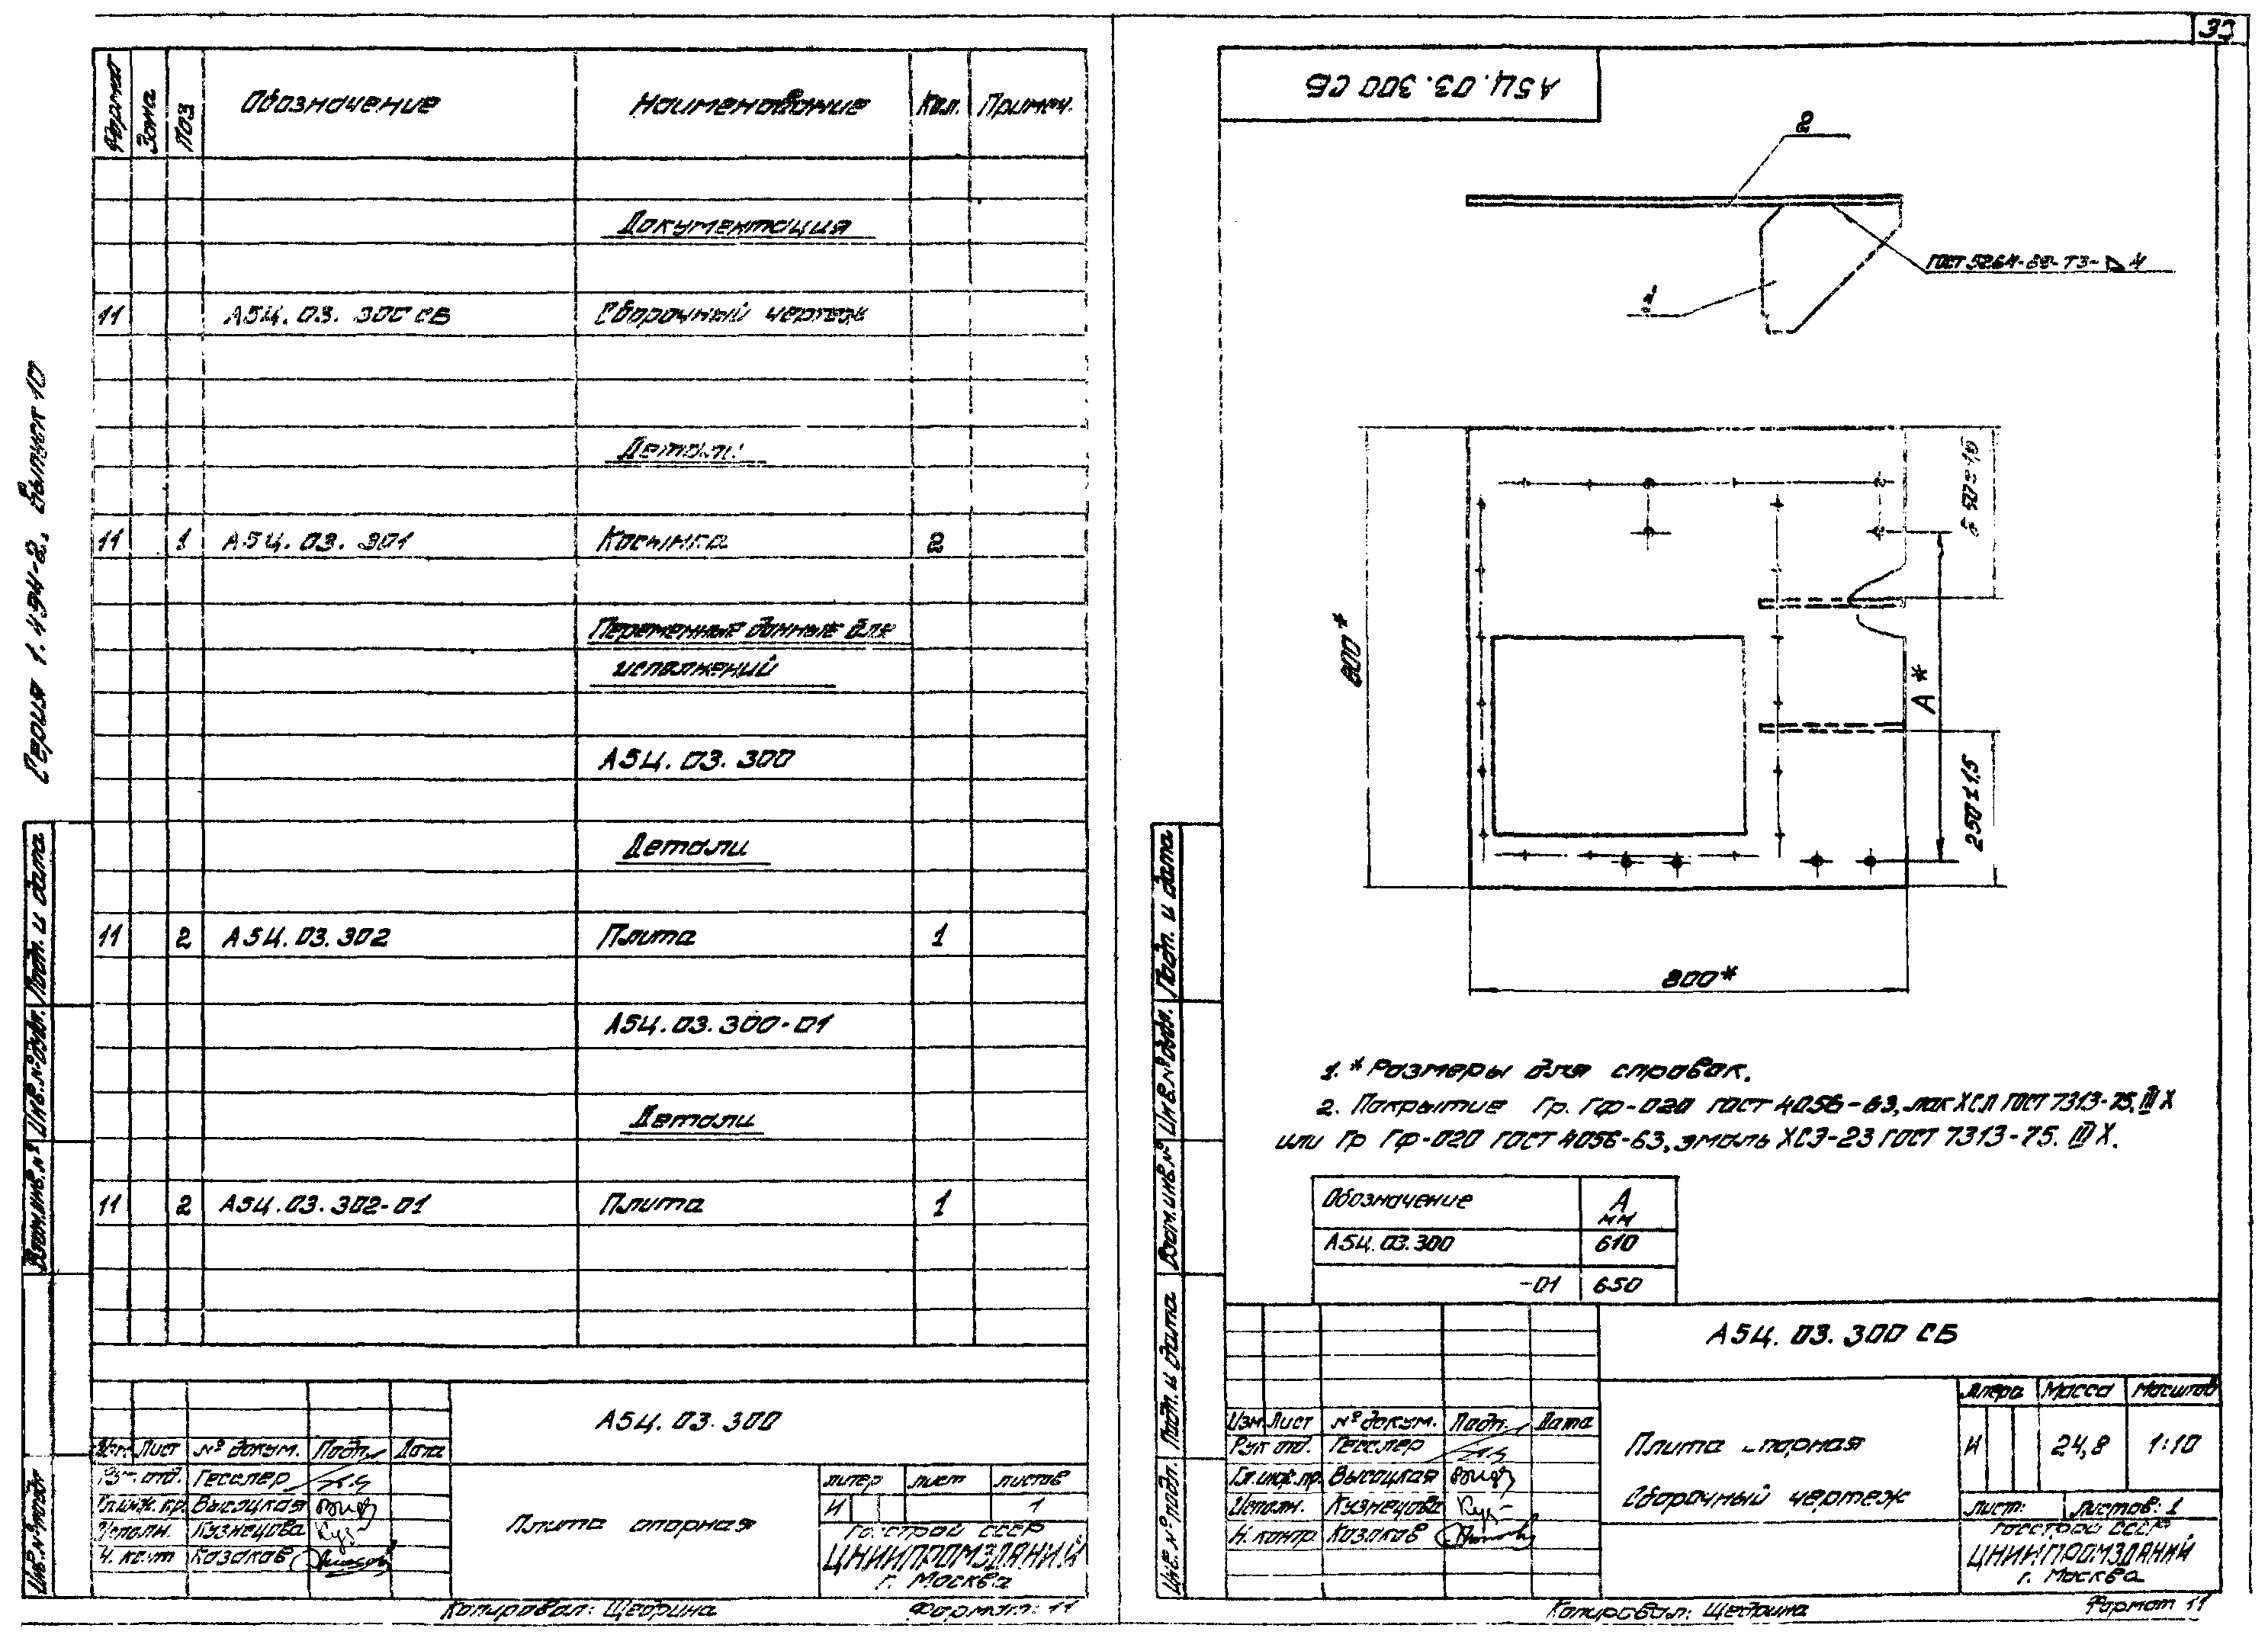 33
Серия 1.494-2. Выпуск 10
Формат Зона Поз Обозначение Наименование Кол. Примеч.
Документация
11 А5Ц.03.300 СБ Сборочный чертеж
Детали
11 1 А5Ц.03.301 Косынка 2
Переменные данные для
исполнений
А5Ц.03.300
Детали
11 2 А5Ц.03.302 Плита 1
А5Ц.03.300-01
Детали
11 2 А5Ц.03.302-01 Плита 1
Подп. и дата
Инв.№дубл.
Взам.инв.№
Инв.№подл.
А5Ц.03.300
Изм Лист № докум. Подп. Дата
Рук. отд. Гесслер
Гл.инж.пр. Высоцкая
Исполн. Кузнецова
Н. конт Казаков
Плита опорная
литер лист листов
И 1
Госстрой СССР
ЦНИИПРОМЗДАНИЙ
г. Москва
Копировал: Щедрина Формат: 11
А5Ц.03.300 СБ
2
ГОСТ 5264-69-Т3- 4
1
800*
А*
250±1,5
800*
1.* Размеры для справок.
2. Покрытие Гр. ГФ-020 ГОСТ 4056-63, лак ХСЛ ГОСТ 7313-75. III Х
или Гр ГФ-020 ГОСТ 4056-63, эмаль ХСЭ-23 ГОСТ 7313-75. III Х.
Обозначение А мм
А5Ц.03.300 610
-01 650
Подп. и дата
Инв.№дубл.
Взам.инв.№
Подп. и дата
Инв.№подл.
А5Ц.03.300 СБ
Изм Лист № докум. Подп. Дата
Рук отд. Гесслер
Гл.инж.пр. Высоцкая
Исполн. Кузнецова
Н. контр. Казаков
Плита опорная
Сборочный чертеж
Литера Масса Масштаб
И 24,8 1:10
Лист: Листов: 1
Госстрой СССР
ЦНИИПРОМЗДАНИЙ
г. Москва
Копировал: Щедрина Формат 11